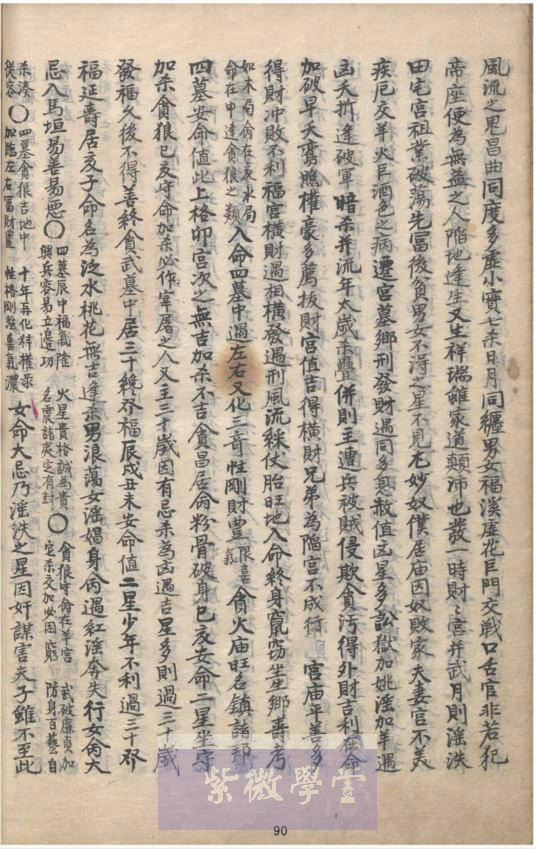 風流之鬼昌曲同度多虛小實七杀日月同纏男女福溪虛花巨門交戦口舌官非若犯
帝座便為無益之人陥地逢生又生祥瑞雖家道顛沛也發一時財〻宮并武月則淫泆
田宅宮祖業破蕩先富後貧男女不淂之星不見尤妙奴僕居庙因奴敗家夫妻官不美
疾厄交羊火巨酒色之病遷宮墓鄉刑發財遇同多息赦值凶星多訟獄加姚淫加羊遇
凶夭折逢破軍暗杀并流年太歲杀疊併則主遭兵被賊侵欺貪污得外財吉利在命
加破早夭鸞照權豪多萬拔財宮值吉得橫財兄弟為陥宮不成行宮庙平善多
得財冲敗不利福宮橫財遇相橫發遇刑風流綵仗胎旺地入命終身竄窃坐生鄉壽考
如木局貪在亥水局
命在申逢貪狼之類入命四墓中遇左右又化三奇性剛財豐限喜氣貪火庙旺名鎮諸邦
四墓安命值此上格卯宮次之無吉加杀不吉貪昌居命粉骨破身巳亥安命二星坐守
加杀貪狼巳亥守命加杀必作宰屠之人又主三十歲因有忌杀為凶遇吉星多則過三十歲
發福久後不得善終貪武墓中居三十纔夻福辰戌丑未安命值二星少年不利過三十夻
福延壽居亥子命名為泛水桃花無吉逢杀男浪蕩女淫娼身命遇紅淫奔失行女命大
忌入馬垣易善易惡〇四墓辰中福氣隆
興兵容易立邊功
火星貴格誠為貴
名震諸夷定有封〇貪狼守命在羊宮
定杀交加必困窮
武破廉貞加
防身百藝自
杀湊
從容〇四墓貪狼吉地中
加臨左右富財豐
十年再化科權录
性格剛強喜氣濃女命大忌乃淫泆之星因奸謀害夫子雖不至此
紫微學堂
90